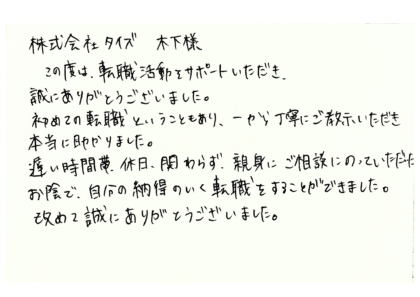 株式会社タイズ 木下様
この度は、転職活動をサポートいただき、
誠にありがとうございました。
初めての転職ということもあり、一から丁寧にご教示いただき
本当に助かりました。
遅い時間帯、休日、関わらず、親身にご相談にのっていただた
お陰で、自分の納得のいく転職をすることができました。
改めて誠にありがとうございました。